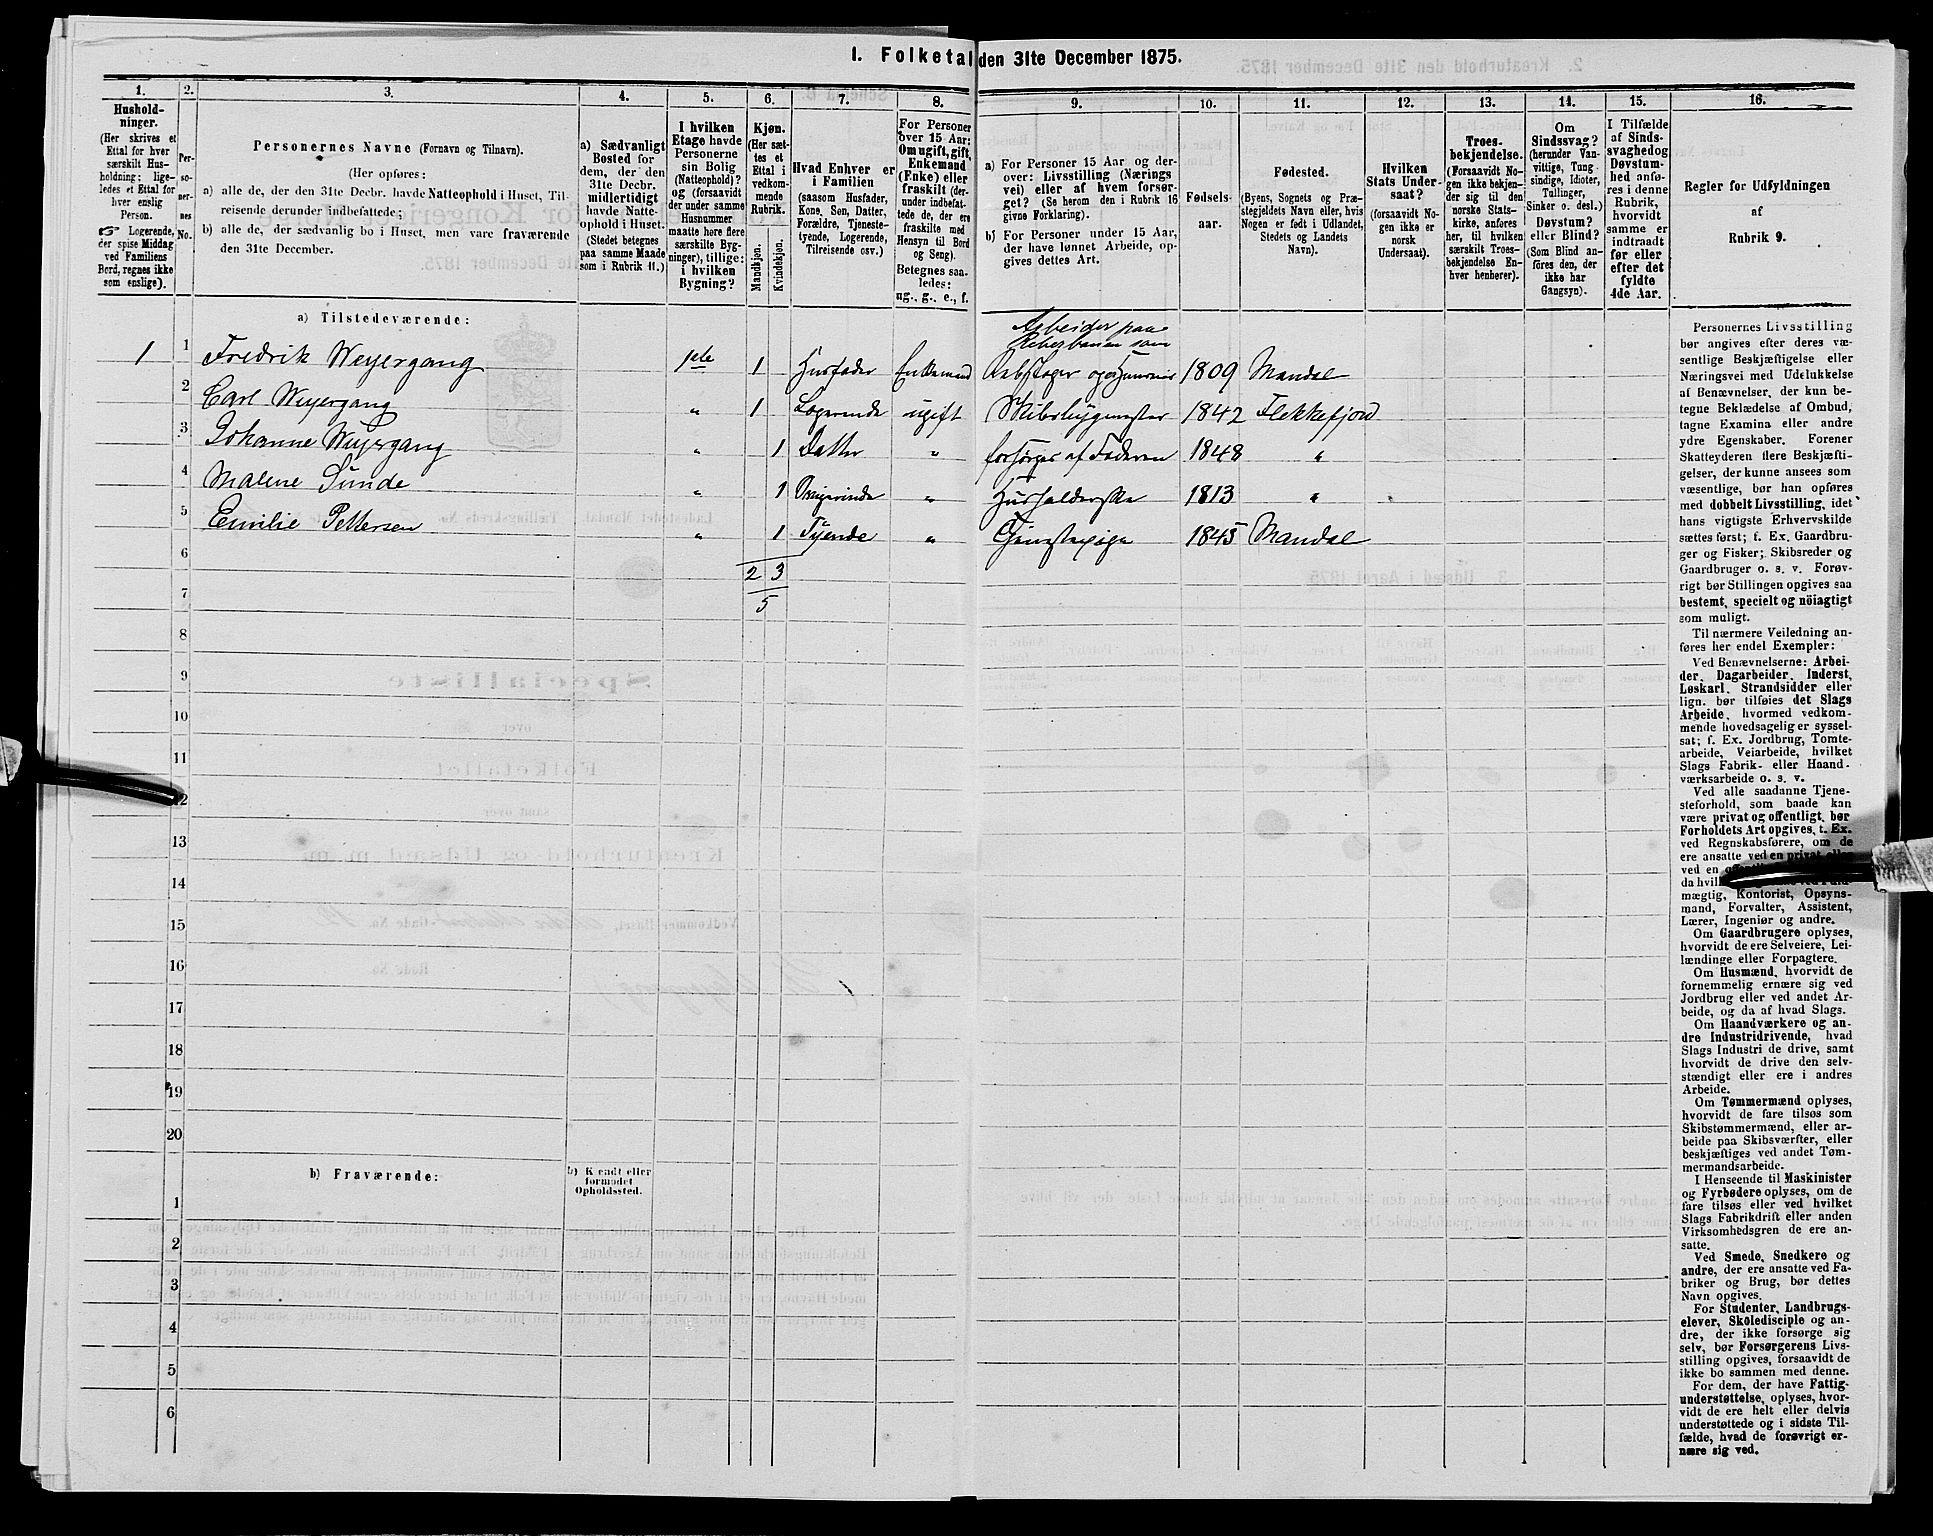 1. Folketal den 31te December 1875.
1. 2. 3. 4. 5. 6. 7. 8. 9. 10. 11. 12. 13. 14. 15. 16.
Hushold-
ninger.
(Her skrives et
Ettal for hver
særskilt Hus-
holdning; lige-
ledes et Ettal for
hver enslig
Person.
☞ Logerende,
der spise Middag
ved Familiens
Bord, regnes ikke
som enslige).
Per-
so-
ner-
nes
No.
Personernes Navne (Fornavn og Tilnavn).
(Her opføres:
a) alle de, der den 31te Decbr. havde Natteophold i Huset, Til-
reisende derunder indbefattede;
b) alle de, der sædvanlig bo i Huset, men vare fraværende
den 31te December.
a) Sædvanligt
Bosted for
dem, der den
31te Decbr.
midlertidigt
havde Natte-
ophold i Huset.
(Stedet betegnes
paa samme Maade
som i Rubrik 11.)
I hvilken
Etage havde
Personerne
sin Bolig
(Natteophold)?
og (forsaavidt
der under samme
Husnummer
maatte høre flere
særskilte Byg-
ninger), tillige:
i hvilken
Bygning?
Kjøn.
(Her sæt-
tes et
Ettal i
vedkom-
mende
Rubrik.
Mandkjøn.
Kvindekjøn.
Hvad Enhver er
i Familien
(saasom Husfader,
Kone, Søn, Datter,
Forældre, Tjeneste-
tyende, Logerende,
Tilreisende osv.)
For Personer
over 15 Aar:
Om ugift, gift,
Enkemand
(Enke) eller
fraskilt (der-
under indbefat-
tede de, der ere
fraskilte med
Hensyn til Bord
og Seng).
Betegnes saa-
ledes:
ug., g., e., f.
a) For Personer 15 Aar og der-
over: Livsstilling (Nærings
vei) eller af hvem forsør-
get? (Se herom den i Rubrik 16
givne Forklaring).
b) For Personer under 15 Aar,
der have lønnet Arbeide, op-
gives dettes Art.
Fødsels-
aar.
Fødested.
(Byens, Sognets og Præ-
stegjeldets Navn eller, hvis
Nogen er født i Udlandet,
Stedets og Landets
Navn).
Hvilken
Stats Under-
saat?
(forsaavidt No-
gen ikke er
norsk
Undersaat).
Troes-
bekjendelse.
(Forsaavidt No-
gen ikke bekjen-
der sig til den
norske Stats-
kirke, anføres
her, til hvilken
særskilt Troes-
bekjendelse En-
hver henhører).
Om
Sindssvag?
(herunder Van-
vittige, Tung
sindige, Idioter,
Tullinger,
Sinker o. desl.)
Døvstum?
eller Blind?
(Som Blind an-
føres den, der
ikke har
Gangsyn).
I Tilfælde
af Sinds-
svaghed og
Døvstum-
hed anfø-
res i denne
Rubrik,
hvorvidt
samme er
indtraadt
før eller
efter det
fyldte
4de Aar.
Regler for Udfyldningen
af
Rubrik 9.
a) Tilstedeværende:
Arbeider paa
Reberbanen som
1 1 Fredrik Weyergang 1ste 1 Husfader Enkemand 1809 Mandal
2 Carl Weyergang " 1 Logerende ugift Skibsbygmester 1842 Flekkefjord
3 Johanne Weyergang " 1 Datter " forsørges af Faderen 1848 "
4 Malene Sunde " 1 " Husholderske 1813 "
5 Emilie Pettersen " 1 Tyende " Tjenestepige 1845 Mandal
6 2 3
7 5
8
9
10
11
12
13
14
15
16
17
18
19
20
b) Fraværende:
b) Kjendt eller
formodet
Opholdssted.
1
2
3
4
5
6
Personernes Livsstilling
bør angives efter deres væ-
sentlige Beskjæftigelse eller
Næringsvei med Udelukkelse
af Benævnelser, der kun be-
tegne Beklædelse af Ombud,
tagne Examina eller andre
ydre Egenskaber. Forener
Skatteyderen flere Beskjæfti-
gelser, der kunne ansees som
væsentlige, bør han opføres
med dobbelt Livsstilling, idet
hans vigtigste Erhvervskilde
sættes først; f. Ex. Gaardbru-
ger og Fisker; Skibsreder og
Gaardbruger o. s. v. Forøv-
rigt bør Stillingen opgives saa
bestemt, specielt og nøiagtigt
som muligt.
Til nærmere Veiledning an-
føres her endel Exempler:
Ved Benævnelserne: Arbei-
der, Dagarbeider, Inderst,
Løskarl, Strandsidder eller
lign. bør tilføies det Slags
Arbeide, hvormed vedkom-
mende hovedsagelig er syssel-
sat; f. Ex. Jordbrug, Tomte-
arbeide, Veiarbeide, hvilket
Slags Fabrik- eller Haand-
værksarbeide o. s. v.
Ved alle saadanne Tjene-
steforhold, som baade kan
være privat og offentligt, bør
Forholdets Art opgives, t. Ex.
ved Regnskabsførere, om de
ere ansatte ved en privat eller
ved en
da hvil
mægtig, Kontorist, Opsyns-
mand, Forvalter, Assistent,
Lærer, Ingeniør og andre.
Om Gaardbrugere oplyses,
hvorvidt de ere Selveiere, Lei-
lændinge eller Forpagtere.
Om Husmænd, hvorvidt de
fornemmelig ernære sig ved
Jordbrug eller ved andet Ar-
beide, og da af hvad Slags.
Om Haandværkere og an-
dre Industridrivende, hvad
Slags Industri de drive, samt
hvorvidt de drive den selv-
stændigt eller ere i andres
Arbeide.
Om Tømmermænd oplyses,
hvorvidt de fare tilsøs som
Skibstømmermænd, eller ar-
beide paa Skibsværfter, eller
beskjæftiges ved andet Tøm-
mermandsarbeide.
I Henseende til Maskinister
og Fyrbødere oplyses, om de
fare tilsøs eller ved hvilket
Slags Fabrikdrift eller anden
Virksomhedsgren de ere an-
satte.
Ved Smede, Snedkere og
andre, der ere ansatte ved Fa-
briker og Brug, bør dettes
Navn opgives.
For Studenter, Landbrugs-
elever, Skoledisciple og an-
dre, der ikke forsørge sig
selv, bør Forsørgerens Livs-
stilling opgives, forsaavidt de
ikke bo sammen med denne.
For dem, der have Fattig-
understøttelse, oplyses, hvor-
vidt de ere helt eller delvis
understøttede og i sidste Til-
fælde, hvad de forøvrigt er-
nære sig ved.